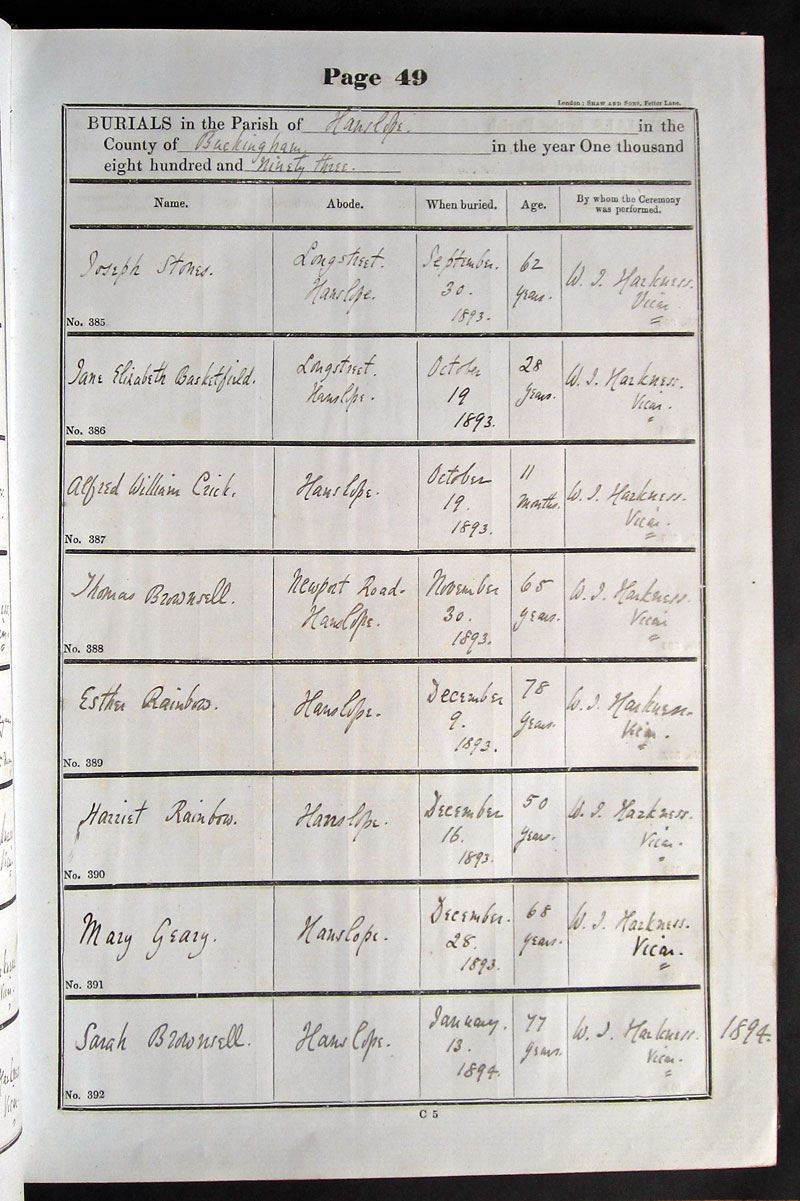 Page 49
London: SHAW AND SONS, Fetter Lane.
BURIALS in the Parish of Hanslope. in the
County of Buckingham. in the year One thousand
eight hundred and Ninety three.
Name. Abode. When buried. Age. By whom the Ceremony was performed.
Joseph Stones.
Longstreet.
Hanslope.
September.
30.
1893.
62
years.
W. J. Harkness.
Vicar
No. 385
Jane Elizabeth Basketfield.
Longstreet.
Hanslope.
October
19
1893.
28
years.
W. J. Harkness.
Vicar.
No. 386
Alfred William Crick.
Hanslope.
October
19.
1893.
11
months.
W. J. Harkness.
Vicar.
No. 387
Thomas Brownsell.
Newport Road.
Hanslope.
November
30.
1893.
65
years.
W. J. Harkness.
Vicar
No. 388
Esther Rainbow.
Hanslope.
December
9.
1893.
78
years.
W. J. Harkness.
Vicar.
No. 389
Harriet Rainbow.
Hanslope.
December
16.
1893.
50
years.
W. J. Harkness.
Vicar.
No. 390
Mary Geary.
Hanslope.
December.
28.
1893.
68
years.
W. J. Harkness.
Vicar.
No. 391
Sarah Brownsell.
Hanslope.
January.
13.
1894.
77
years.
W. J. Harkness.
Vicar.
1894.
No. 392
C 5